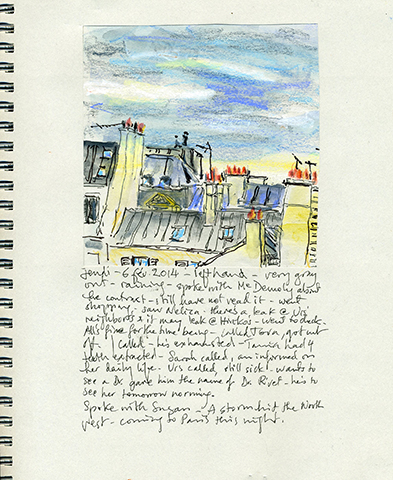 Jeudi - 6 fév 2014 - left hand - very gray
out - raining - spoke with Me about
the contract - still have not read it - went
shopping, saw there's a leak @
neighbors & it may leak @ - went to check
fine for the time being - called got out
of I called - his exhausted - had 4
teeth extracted - Sarah called, an informed on
her daily life. Urs called, still sick! wants to
see a Dr. gave him the name of Dr. Rivet - he is to
see her tomorrow morning.
Spoke with Susan - A storm hit the North
West - coming to Paris this night.